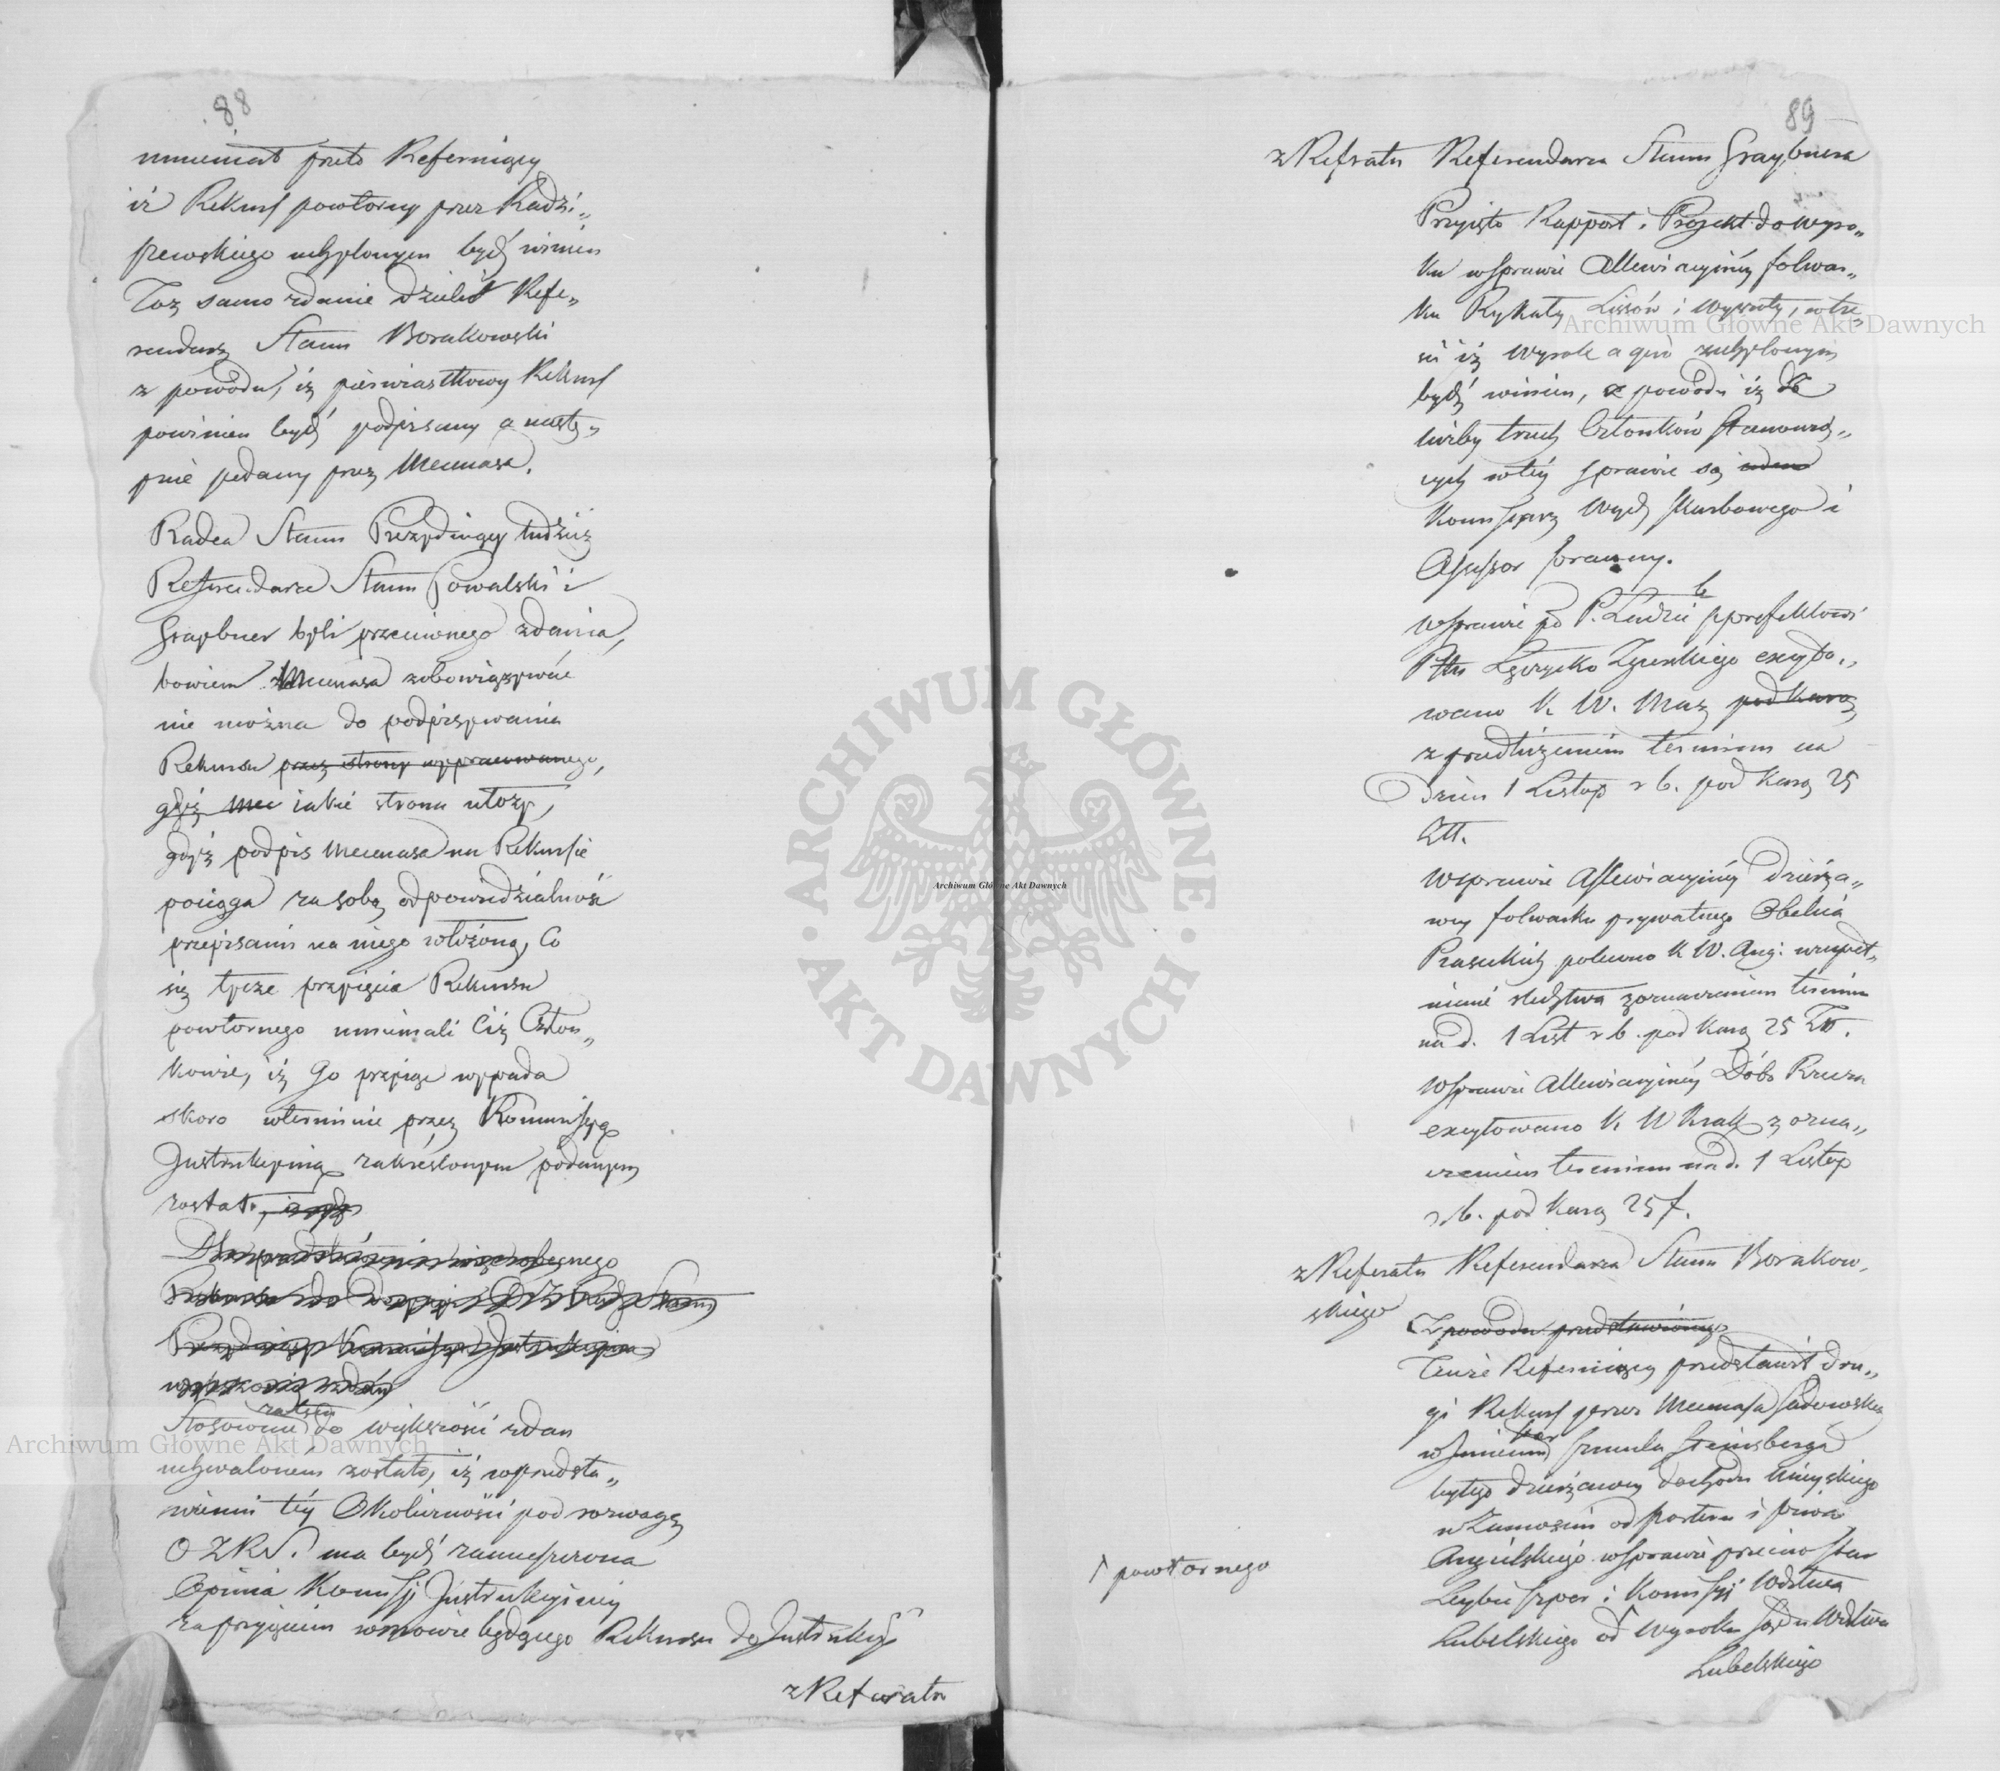 88
mniemał przeto Referuiący
iż Rekurs powtorny przez Radzi„
szewskiego uchylonym bydź winien
Toż samo zdanie dzielił Refe„
rendarz Stanu Borakowski
z powodu, iż pierwiastkowy Rekurs
powinien bydź podpisany a nastę„
pnie podany przez Mecenasa.
Radca Stanu Prezyduiący tudzież
Referendarze Stanu Kowalski i
Graybner byli przeciwnego zdania,
bowiem Mecenasa zobowiązywać
nie można do podpisywania
Rekursu przez strony wypracowanego,
gdyż iakie strona ułoży,
gdyż podpis Mecenasa na Rekursie
pociąga za sobą odpowiedzialność
przepisami na niego włożoną, Co
się tycze przyięcia Rekursu
powtornego mniemali Ciż Człon„
kowie, iż Go przyiąć wypada
skoro w terminie przez Kommissyą
Instrukcyiną zakreślonym podanym
został,
zatem
Stosownie do większości zdań
uchwalonem zostało, iż w przedsta„
wieniu tey Okoliczności pod rozwagę
O Z R S. ma bydź zamieszczona
Opinia Kommissyi Instrukcyiney
za przyięciem w mowie będącego Rekursu do Instrukcyi
z Referatu
89
z Referatu Referendarza Stanu Graybnera
Przyięto Rapport i Projekt do wyro„
ku w sprawie Allewiacyiney folwar„
ku Rykały Lissów i Wyrzuty, w tre„
ści iż wyrok a quo uchylonym
bydź winien, z powodu iż do
liczby trzech Członków stanowią„
cych w tey sprawie są
Kommissarz Wydz Skarbowego i
Assessor prawny.
w sprawie po P. Ludzie pprefektowi
Pttu Łęczycko Zgierskiego excyto„
wano K. W. Maz pod karą
z przedłużeniem terminu na
Dzień 1 Listop r b. pod karą 25
Złł.
w sprawie Allewiacyiney dzierża„
wcy folwarku prywatnego Obelnia
polecono K W. Aug: uzupeł„
nienie śledztwa z oznaczeniem terminu
na d. 1 List r b. pod karą 25 Zł.
w sprawie Allewiacyiney Dóbr
excytowano K W Krak z ozna„
czeniem terminu na d. 1 Listop
r. b. pod karą 25 f.
z Referatu Referendarza Stanu Borakow„
skiego
Z powodu przedstawionego
Tenże Referuiący przedstawił dru„
gi Rekurs przez Mecenasa Sadowskie
w Imieniu Szmula Steinsberga
byłego dzierżawcy dochodu Mieyskiego
w Zamościu od porteru i piwa
Angielskiego w sprawie przeciw Star
Leybie Szper i Kommissyi Wdztwa
Lubelskiego od wyroku Sądu Wdztwa
Lubelskiego
powtornego
Archiwum Główne Akt Dawnych
Archiwum Główne Akt Dawnych
Archiwum Główne Akt Dawnych
ARCHIWUM GŁÓWNE AKT DAWNYCH